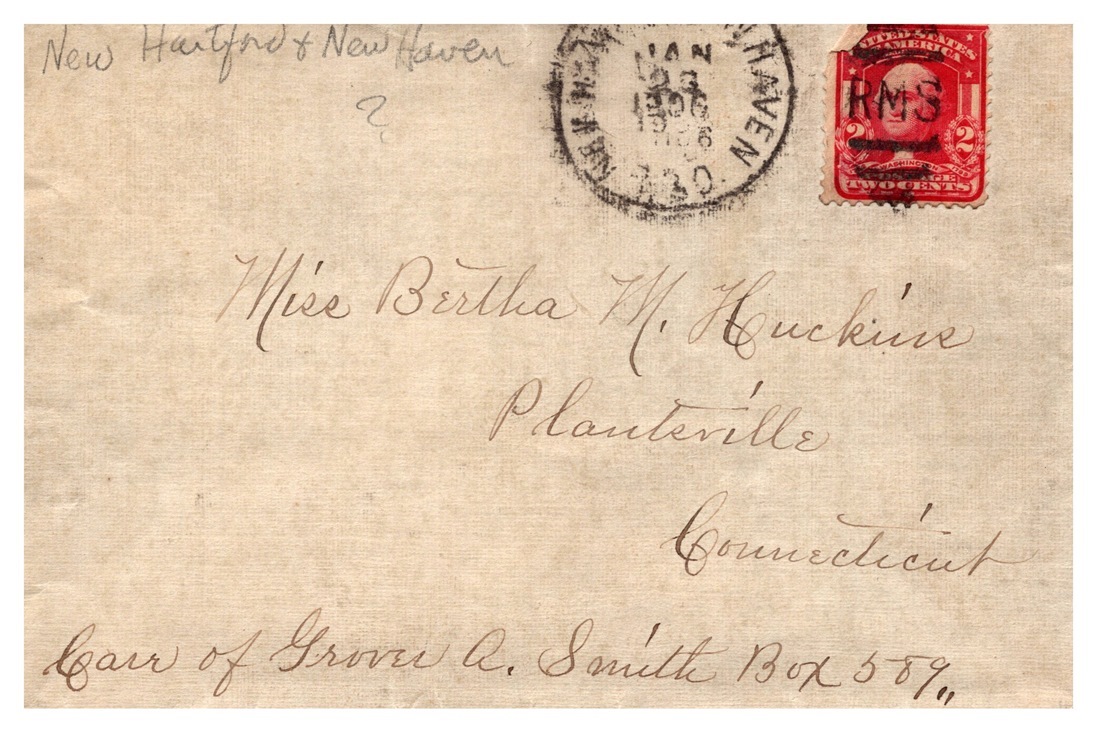 New Hartford & New Haven
?
NEW HA HAVEN
JAN
23
1906
R.P.O.
UNITED STATES
OF AMERICA
RMS
2 2
WASHINGTON
POSTAGE
TWO CENTS
Miss Bertha M. Huckins
Plantsville
Connecticut
Carr of Grover A. Smith Box 589,,